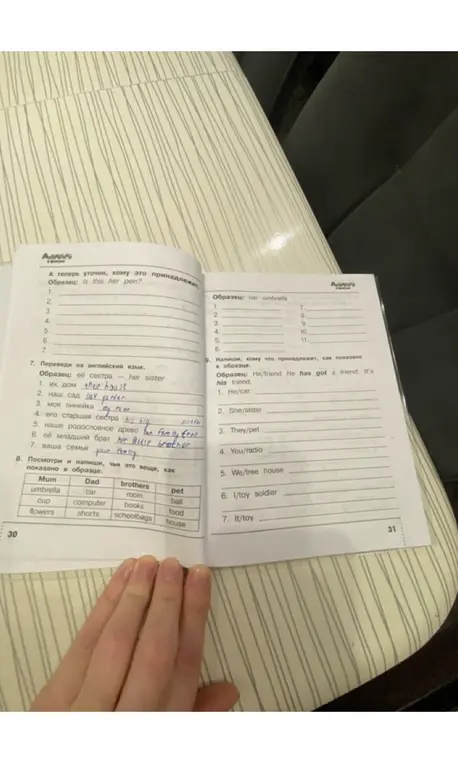 А теперь уточни, кому это принадлежит.
Образец: Is this her pen?
1.
2.
3.
4.
5.
6.
7.
7. Переведи на английский язык.
Образец: её сестра — her sister
1. их дом
2. наш сад
3. моя линейка
4. его старшая сестра his big
5. наше родословное древо our family tree
6. её младший брат her little brother
7. ваша семья your family
8. Посмотри и напиши, чьи это вещи, как
показано в образце.
Mum Dad brothers pet
umbrella car room ball
cup computer books food
flowers shorts schoolbags house
30
Образец: her umbrella
1. 7.
2. 8.
3. 9.
4. 10.
5. 11.
6.
9. Напиши, кому что принадлежит, как показано
в образце.
Образец: He/friend He has got a friend. It's
his friend.
1. He/car
2. She/sister
3. They/pet
4. You/radio
5. We/tree house
6. I/toy soldier
7. It/toy
31